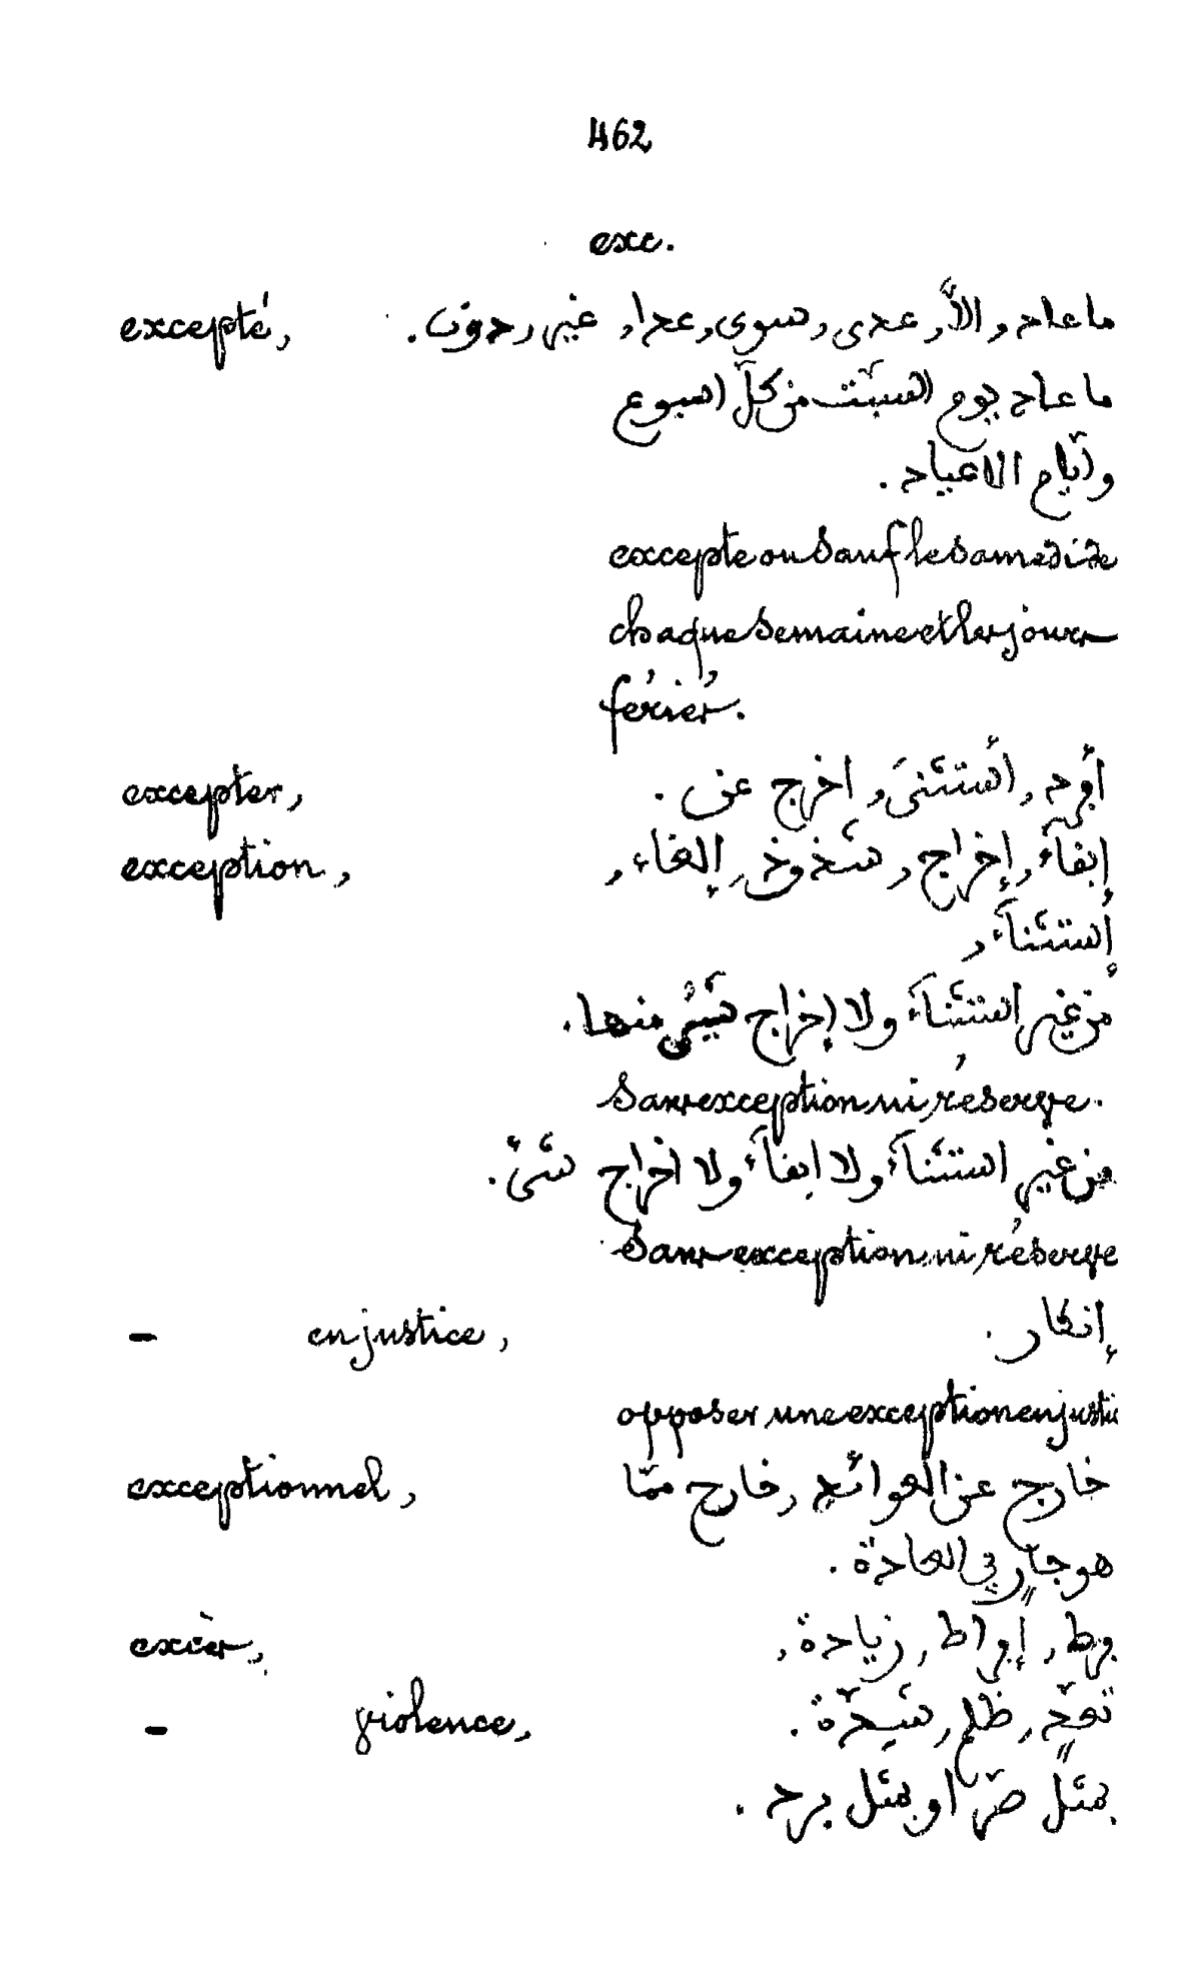 462
exc.
excepté, ماعاد, والاّ, عدى, سوى, عدا, غير, دون.
ما عاد يوم السبت من كلّ اسبوع
وأيام الاعياد.
excepté ou sauf le samedi de
chaque semaine et les jours
fériés.
excepter, أفرد, استثنى, اخرج عن.
exception, إبقاء, إخراج, شذوذ, إلغاء,
إستثناء,
من غير استثناء ولا إخراج شيئ منها.
sans exception ni réserve.
من غير استثناء ولا ابقاء ولا اخراج شئ.
Sans exception ni réserve
— en justice, إنكار.
opposer une exception en justi
exceptionnel, خارج عن العوائد, خارج ممّا
هو جارٍ في العادة.
excès, فرط, إفراط, زيادة,
— violence, تعدٍّ, ظلم, شدّة.